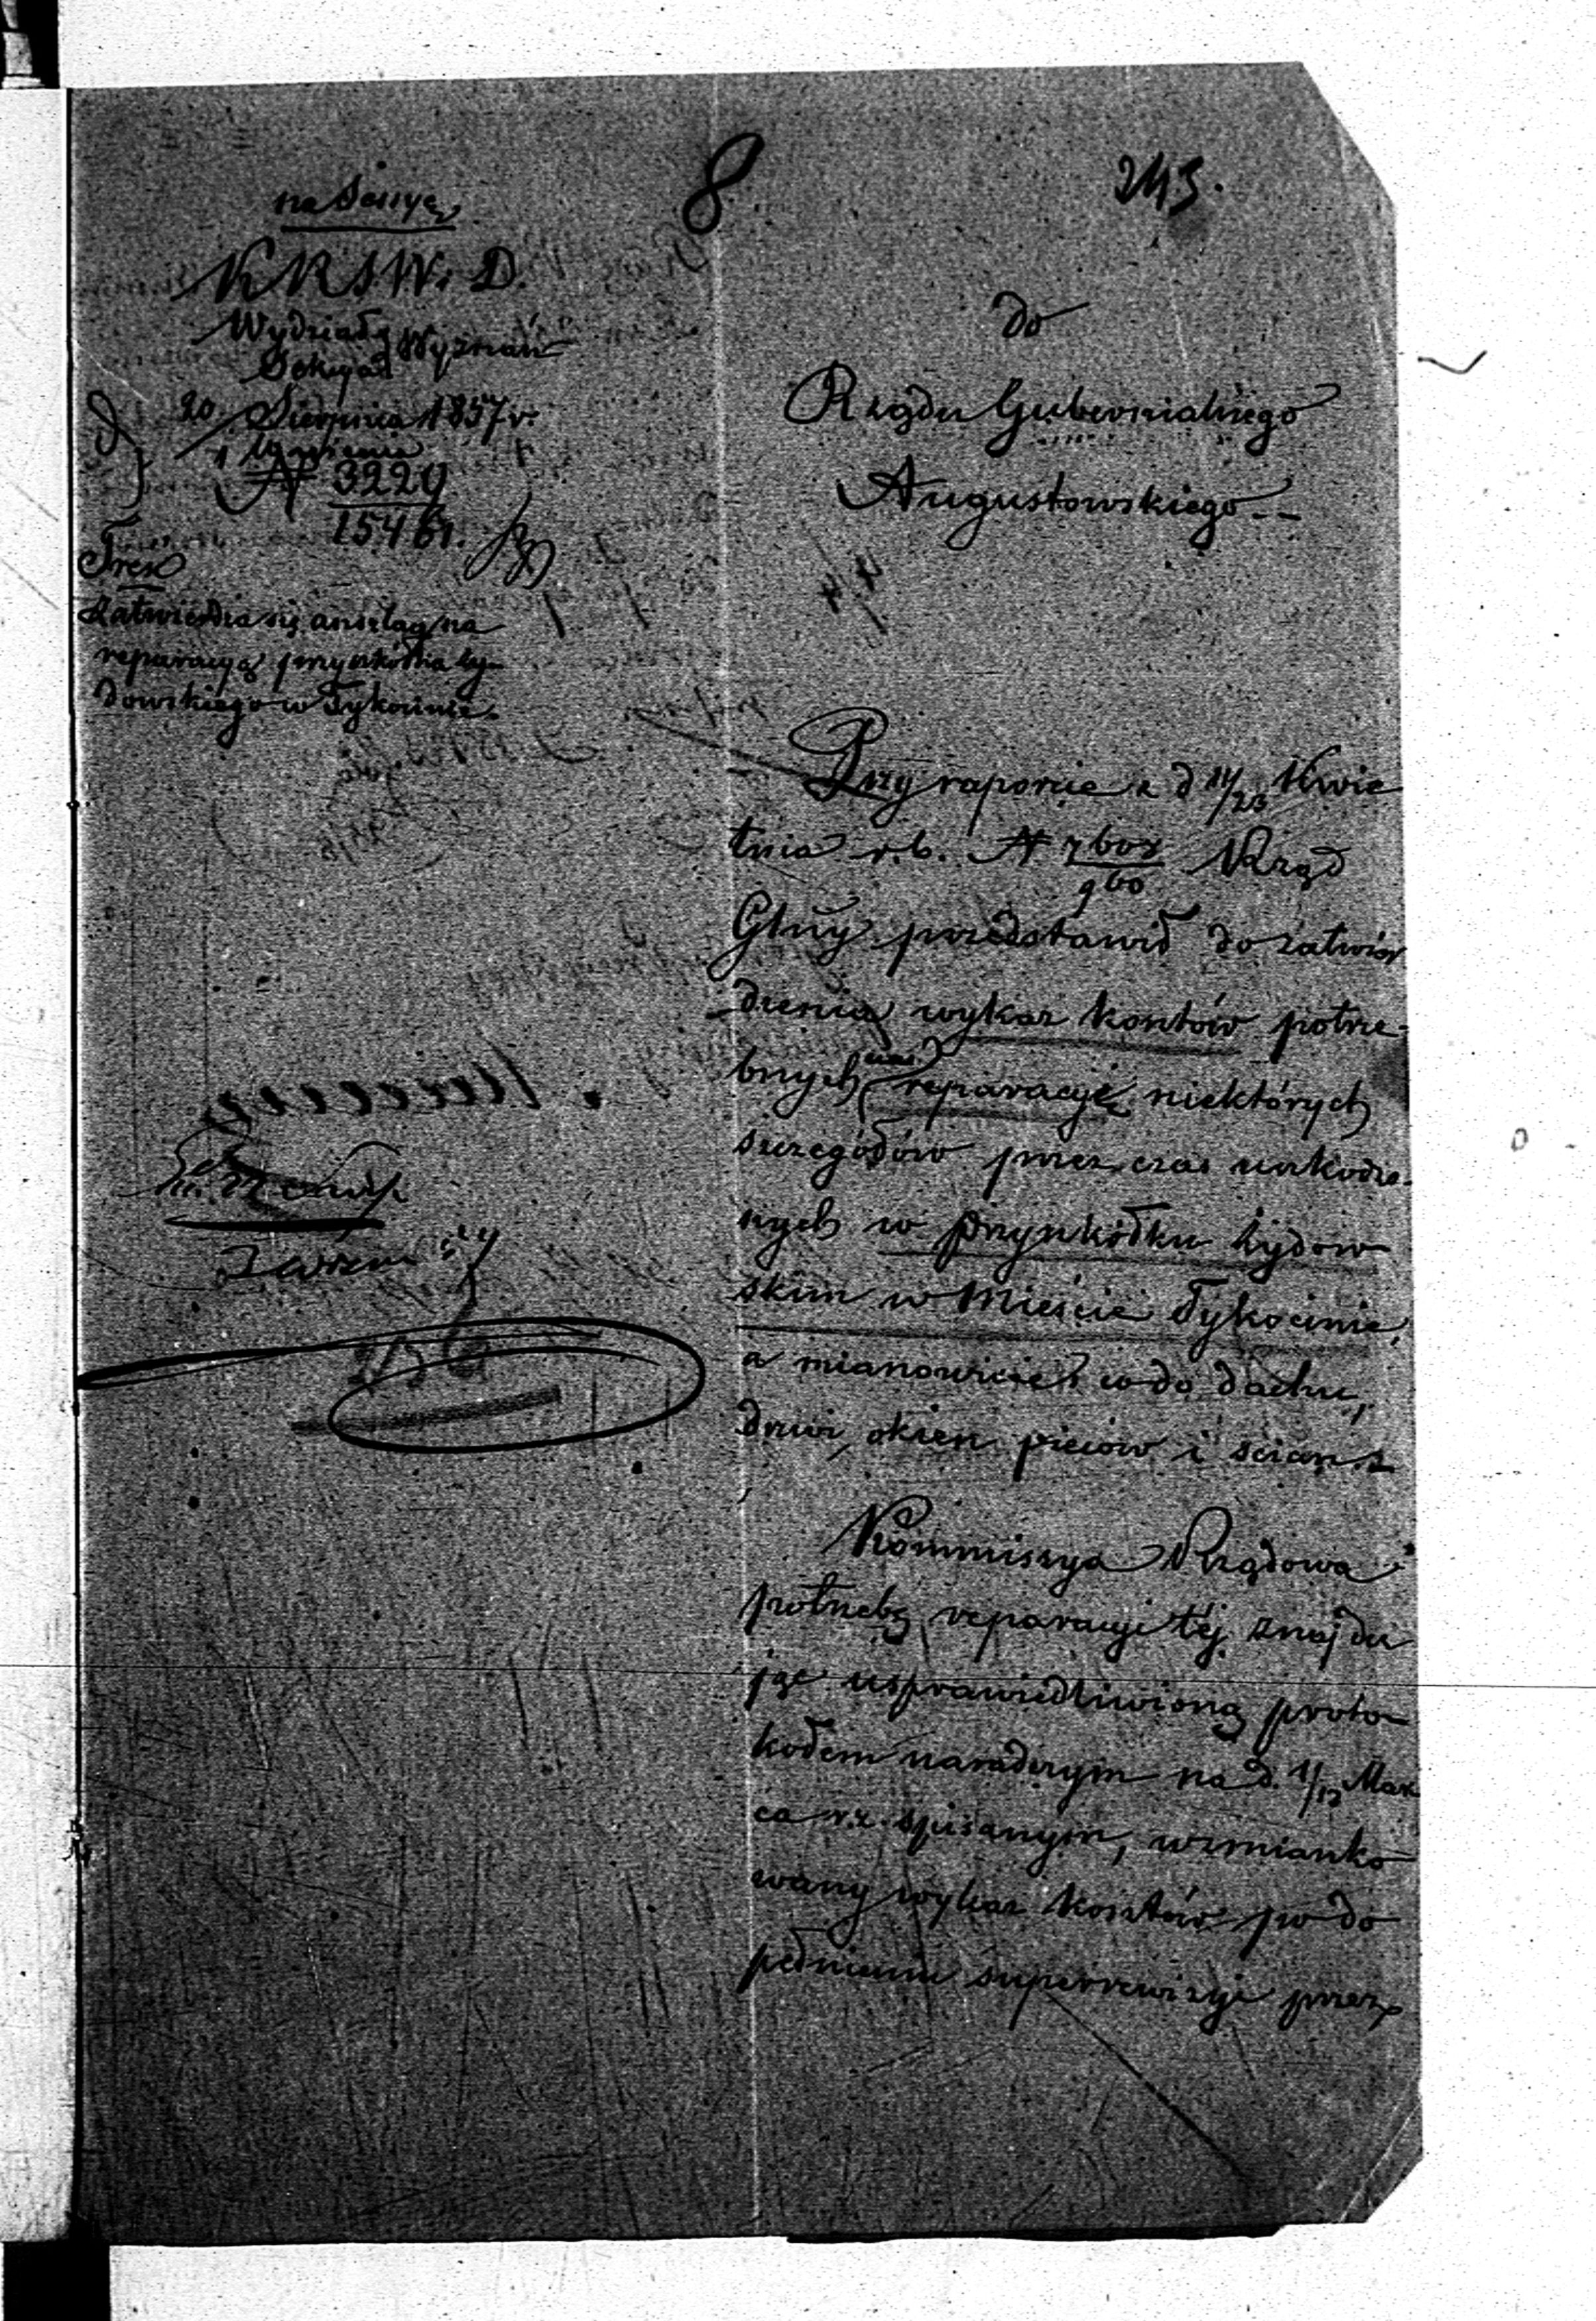 8
243.
na Sessyę
K R S. W. i D.
Wydział Wyznań
Sekcya
20 Sierpnia 1857 r.
1 Września
N 3229
15461.
Treść
Zatwierdza się anszlag na
reparacyą przyszkółka ży-
dowskiego w Tykocinie.
do
Rządu Gubernialnego
Augustowskiego
Przy raporcie z d 11/23 Kwie
tnia r.b. N 7607/960 Rząd
Glny przedstawił do zatwier
dzenia wykaz kosztów potrze-
bnych na reparacyę niektórych
szczegółów przez czas uszkodzo-
nych w przyszkółku żydow
skim w Mieście Tykocinie,
a mianowicie: co do dachu,
drzwi, okien pieców i ścian.
Kommissya Rządowa
potrzebę reparacyi téj znajdu
jąc usprawiedliwioną proto-
kołem naradczym na d. 1/13 Mar
ca r.z. spisanym, wzmianko
wany wykaz kosztów po do
pełnieniu superrewizyi przez